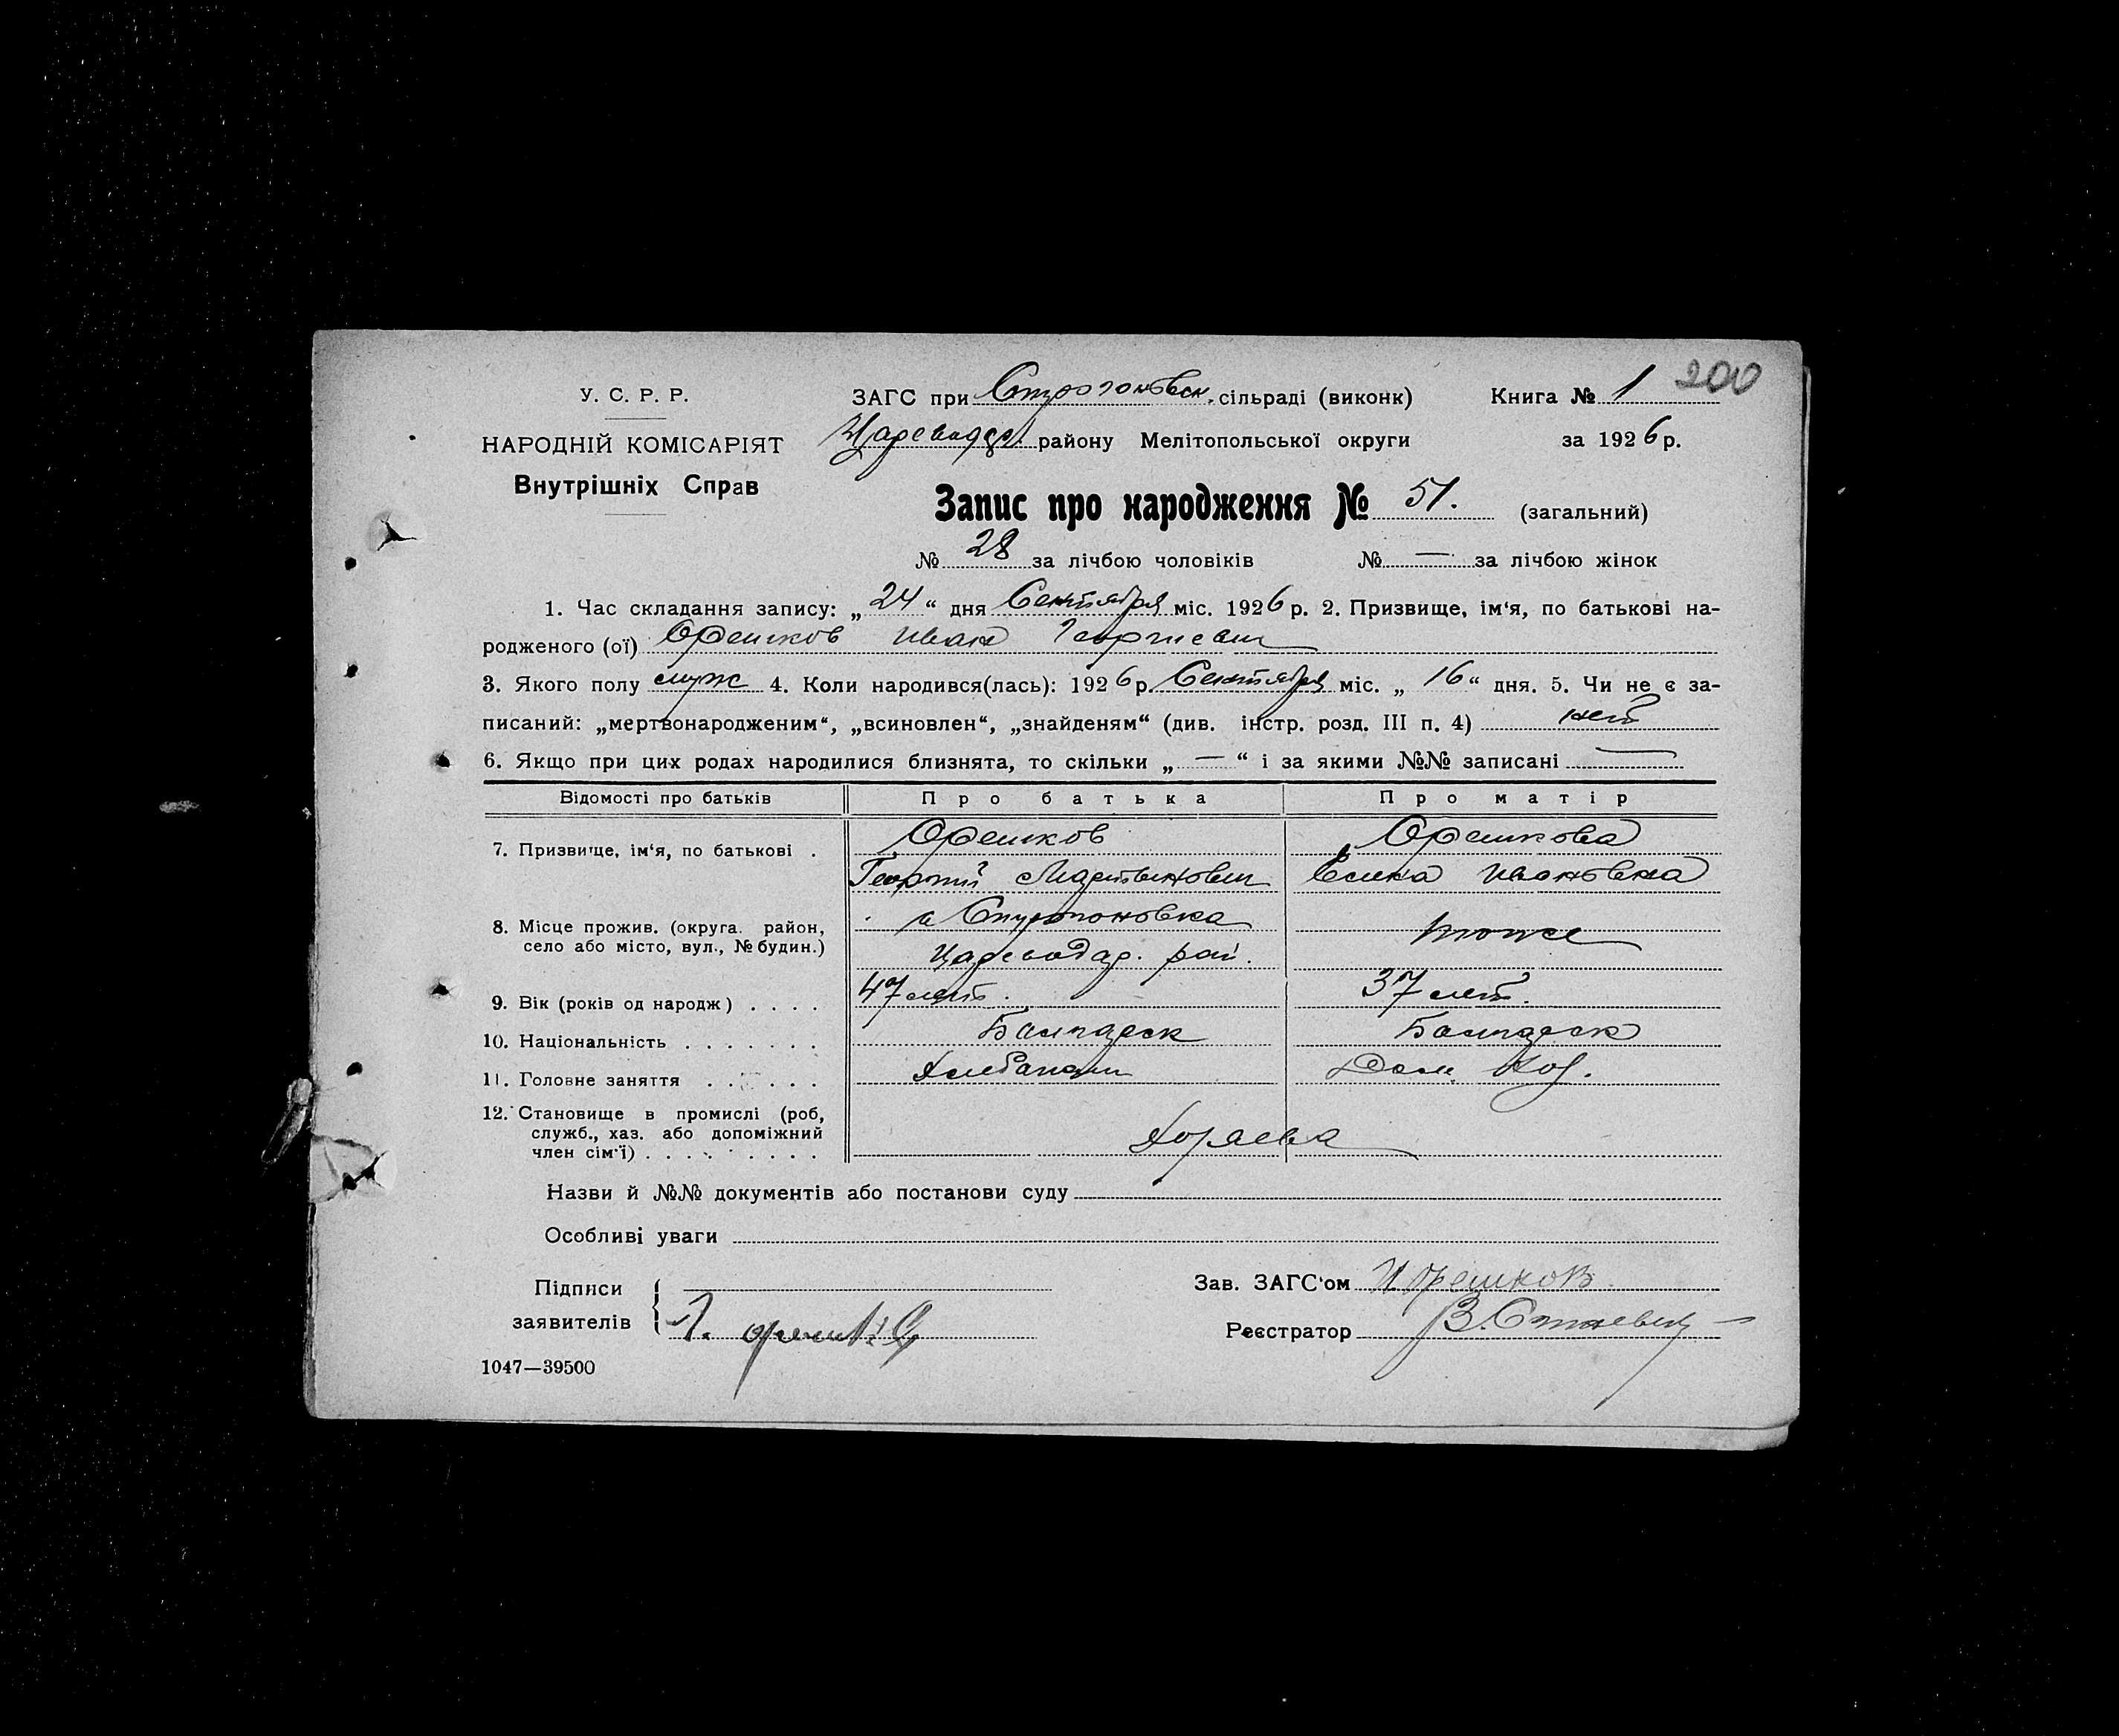 200
У. С. Р. Р. ЗАГС при Строгоновск. сільраді (виконк) Книга № 1
НАРОДНІЙ КОМІСАРІЯТ району Мелітопольської округи за 1926 р.
Внутрішніх Справ
Запис про народження № 51. (загальний)
№ 28 за лічбою чоловіків № — за лічбою жінок
1. Час складання запису: „ 24 “ дня Сентября міс. 1926 р. 2. Призвище, ім‘я, по батькові на-
родженого (ої) Орешков Иван Георгиевич
3. Якого полу муж 4. Коли народився(лась): 1926 р. Сентября міс. „ 16 “ дня. 5. Чи не є за-
писаний: „мертвонародженим“, „всиновлен“, „знайденям“ (див. інстр. розд. III п. 4) нет
6. Якщо при цих родах народилися близнята, то скільки „ — “ і за якими №№ записані —
Відомості про батьків Про батька Про матір
7. Призвище, ім‘я, по батькові . Орешков Орешкова
Георгий Мартынович Елена Ивановна
8. Місце прожив. (округа. район, с Строгоновка тоже
село або місто, вул., № будин.) рай.
9. Вік (років од народж) . . . . 47 лет. 37 лет.
10. Національність . . . . . . . Болгарск Болгарск
11. Головне заняття . . . . . . Хлебопаш Дом. Хоз.
12. Становище в промислі (роб,
служб., хаз. або допоміжний
член сім‘ї) . . . . . . . . .
Хозяева
Назви й №№ документів або постанови суду
Особливі уваги
Підписи Зав. ЗАГС‘ом И Орешков
заявителів Г.
Реєстратор В.
1047—39500